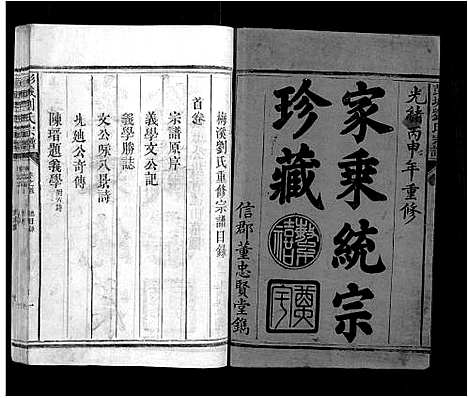 光緒丙申年重修
家乘統宗
珍藏
信郡董忠賢堂鐫
梅溪劉氏重修宗譜目錄
首卷
宗譜原序
義學文公記
義學勝誌
文公咏八景詩
先廸公奇傳
陳瑨題義學
劉氏宗譜